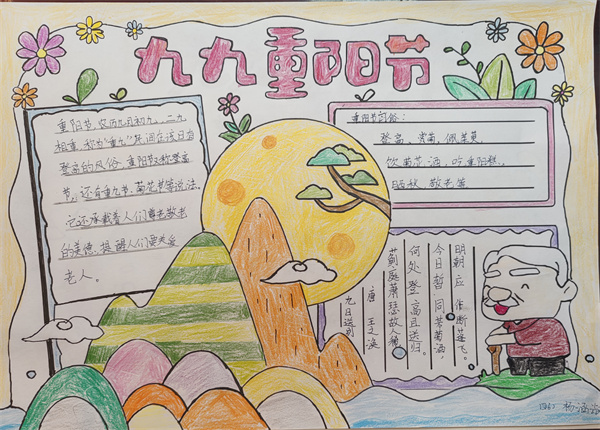 九九重阳节
重阳节，农历九月初九，二九
相重，称为"重九"，民间在该日有
登高的风俗，重阳节又称登高
节，还有重九节、菊花节等说法。
它还承载着人们尊老敬老
的美德，提醒人们要关爱
老人。
重阳节习俗：
登高、赏菊、佩茱萸、
饮菊花酒、吃重阳糕、
晒秋、敬老等
九日送别
唐 王之涣
蓟庭萧瑟故人稀，
何处登高且送归。
今日暂同芳菊酒，
明朝应作断蓬飞。